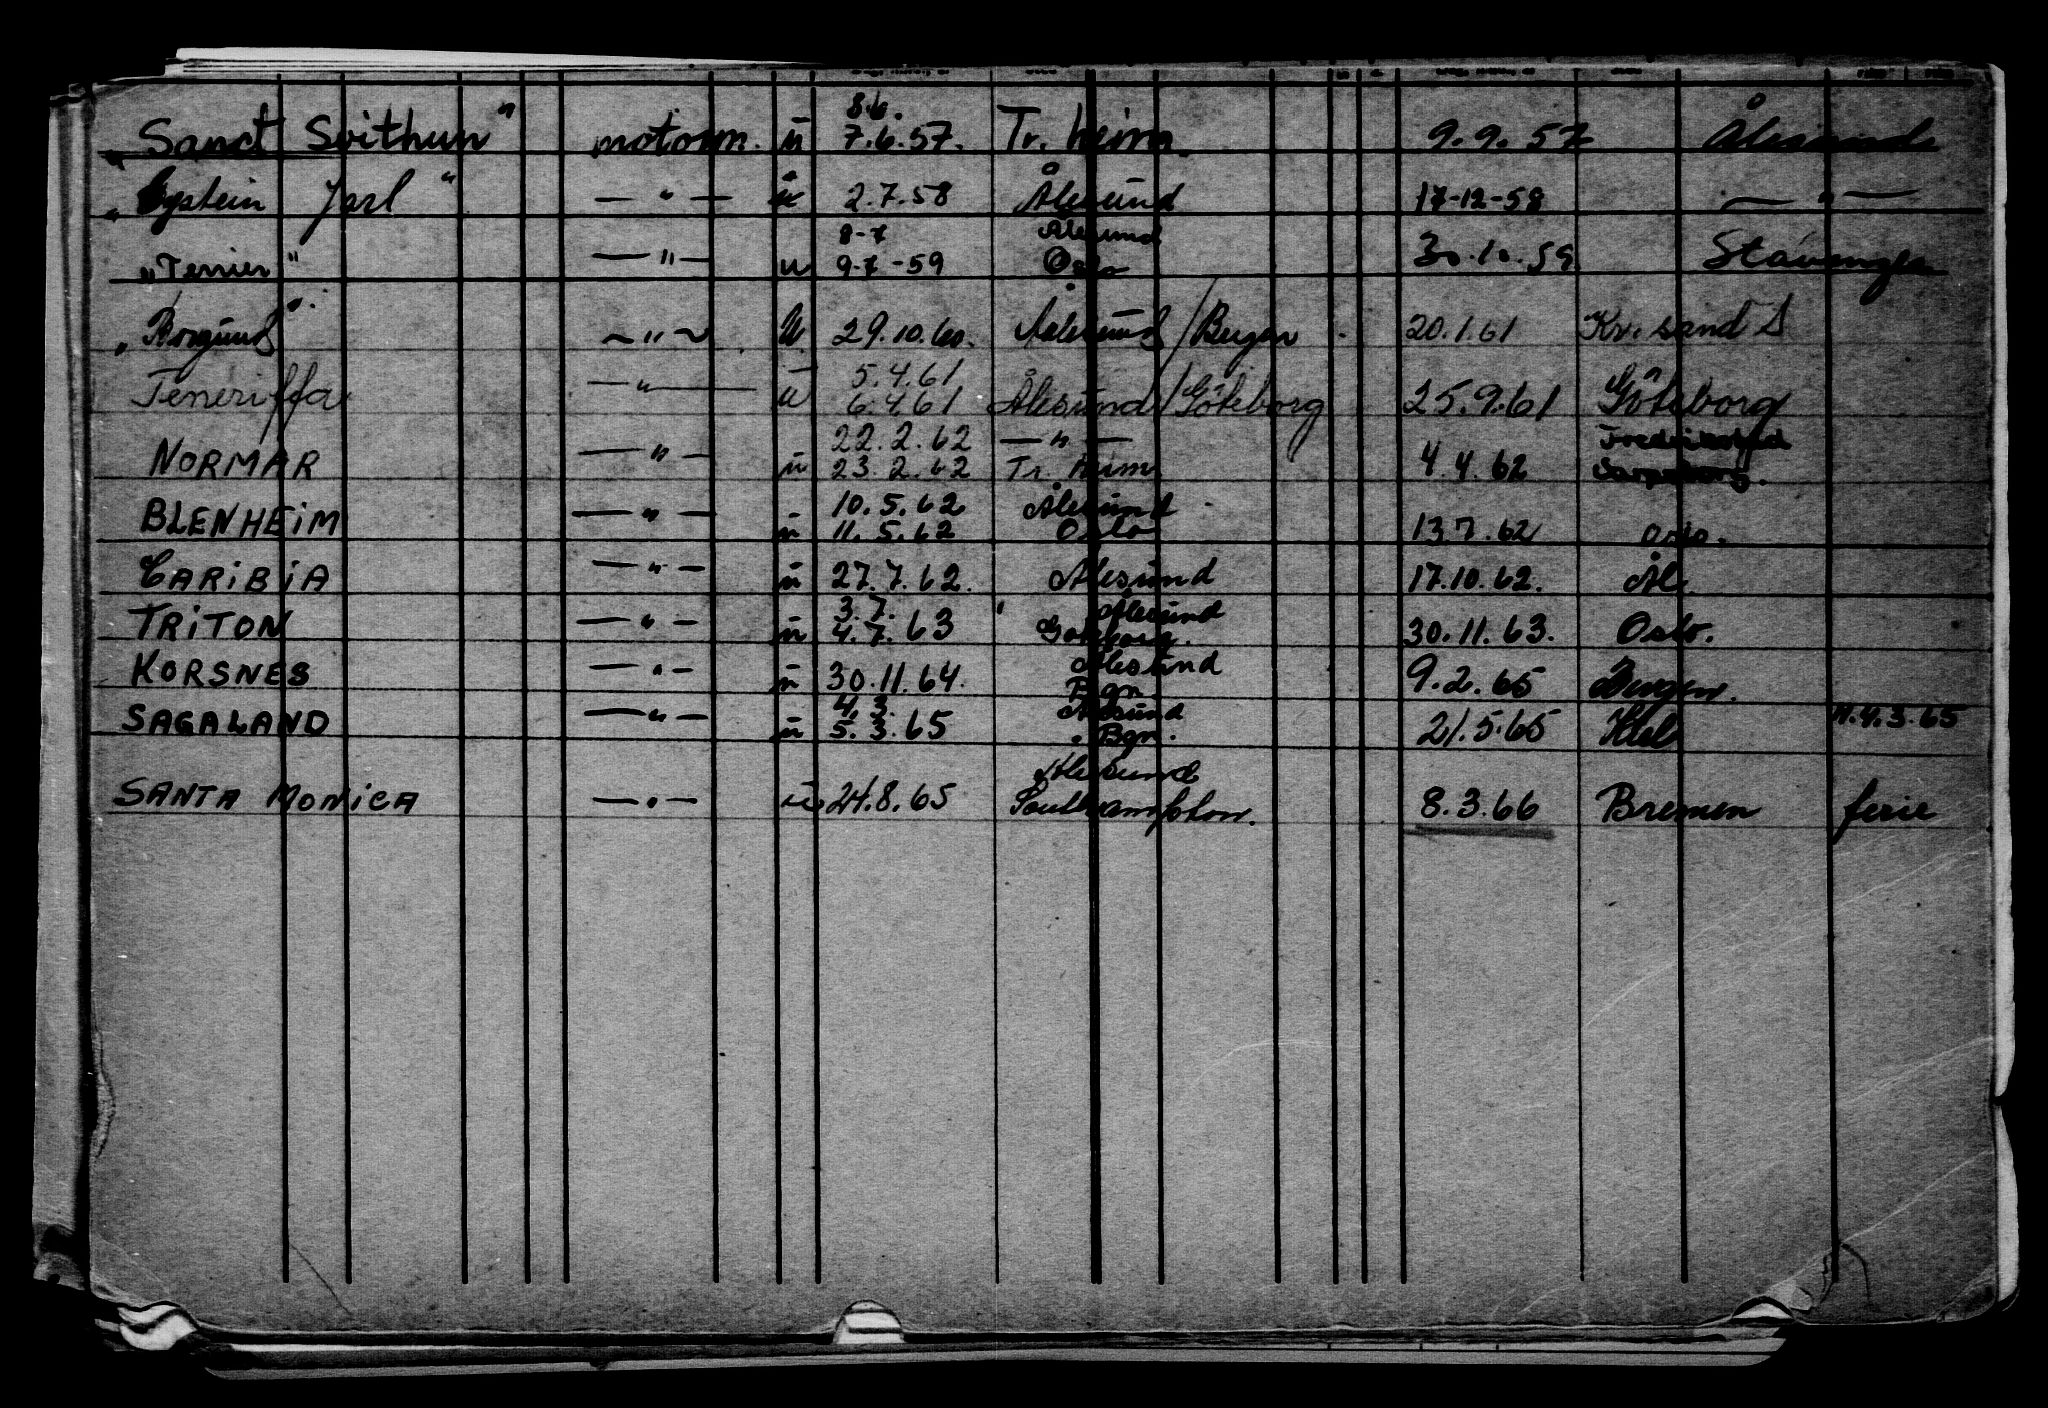 8.6.
„Sanct Svithun" motorm. u 7.6.57. Tr. heim. 9.9.57 Ålesund
„Eystein Jarl" — " — u 2.7.58 Ålesund 17-12-58 — " —
8-7 Ålesund
„Terrier" — " — u 9-7-59 Oslo 30.10.59 Stavanger
„Borgund". ~ " ~ u 29.10.60. Aalesund/Bergen. 20.1.61 Kr.sand S
5.4.61
Teneriffa — " — u 6.4.61 Ålesund/Göteborg 25.9.61 Göteborg
22.2.62 — " — Fredrikstad
NORMAR — " — u 23.2.62 Tr. heim 4.4.62 Sarpsborg.
10.5.62 Ålesund
BLENHEIM — " — u 11.5.62 Oslo 13.7.62 Oslo.
CARIBIA — " — u 27.7.62. Ålesund 17.10.62. Ål.
3.7. Ålesund
TRITON — " — u 4.7.63 Göteborg. 30.11.63. Oslo.
Ålesund
KORSNES — " — u 30.11.64. Bgn 9.2.65 Bergen.
4.3. Ålesund 4.3.65
SAGALAND — " — u 5.3.65 Bgn. 21.5.65
Ålesund
SANTA MONICA — " — u 24.8.65 Southampton. 8.3.66 Bremen ferie